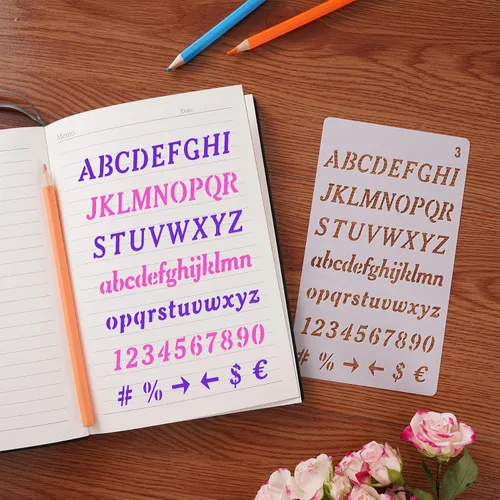 Memo Date:
ABCDEFGHI
JKLMNOPQR
STUVWXYZ
abcdefghijklmn
opqrstuvwxyz
1234567890
# % → ← $ €
3
ABCDEFGHI
JKLMNOPQR
STUVWXYZ
abcdefghijklmn
opqrstuvwxyz
1234567890
# % → ← $ €